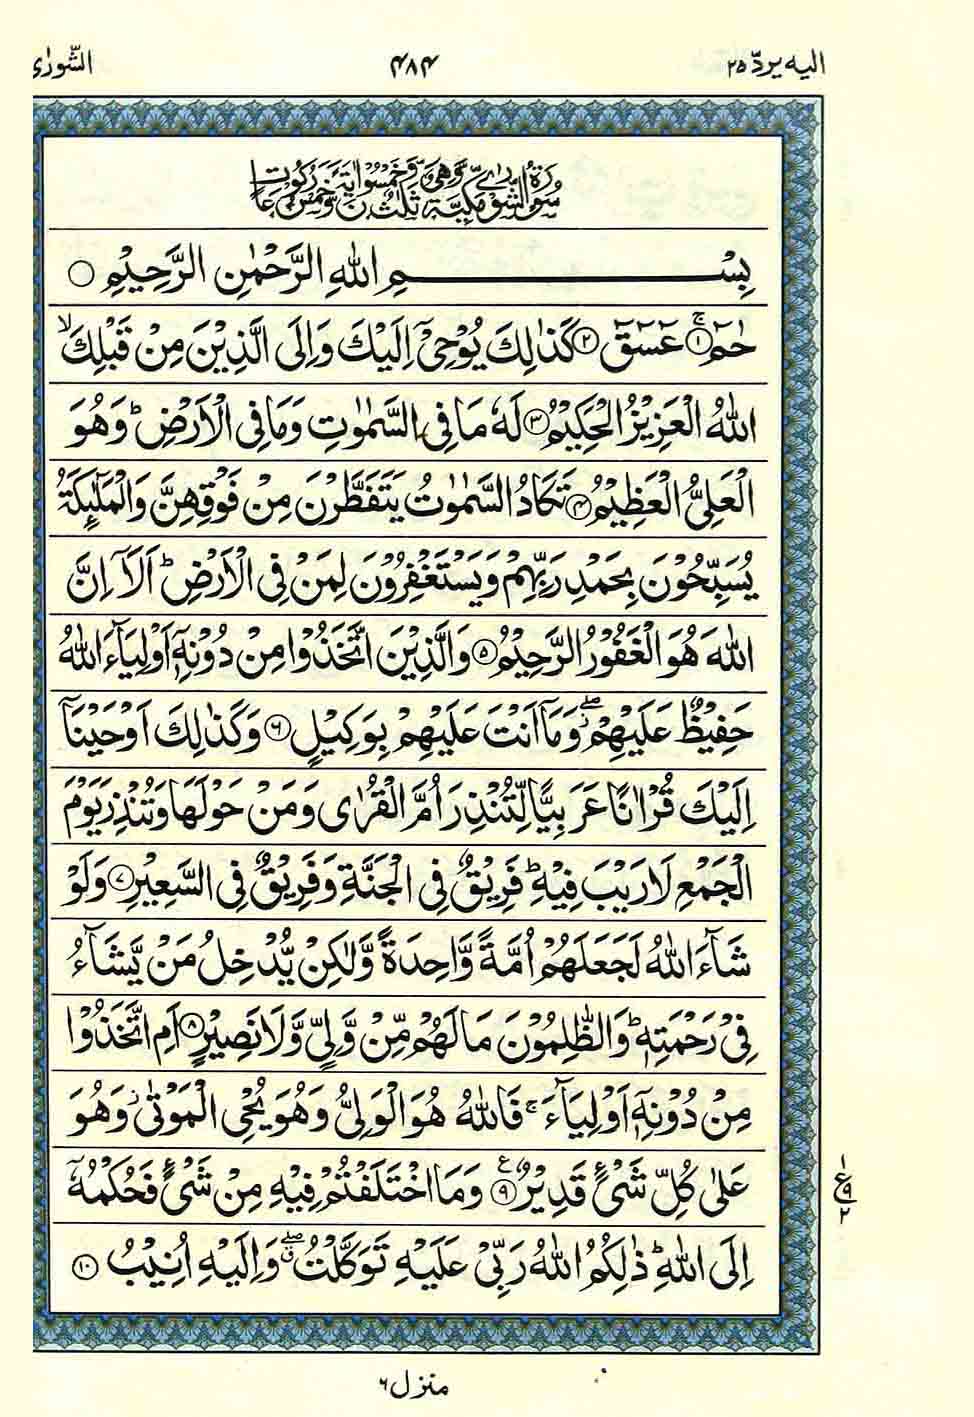 اليه يردّ ٢٥ ٤٨٤ الشّورٰى
سُوْرَةُ الشُّوْرٰى مَكِّيَّةٌ وَّهِيَ ثَلٰثٌ وَّخَمْسُوْنَ اٰيَةً وَّخَمْسُ رُكُوْعَاتٍ
بِسْمِ اللّٰهِ الرَّحْمٰنِ الرَّحِيْمِ ○
حٰمٓ ۚ‏﴿١﴾ عٓسٓقٓ ﴿٢﴾ كَذٰلِكَ يُوْحِيْٓ اِلَيْكَ وَاِلَى الَّذِيْنَ مِنْ قَبْلِكَ ۙ
اللّٰهُ الْعَزِيْزُ الْحَكِيْمُ ﴿٣﴾ لَهٗ مَا فِي السَّمٰوٰتِ وَمَا فِي الْاَرْضِ ؕ وَهُوَ
الْعَلِيُّ الْعَظِيْمُ ﴿٤﴾ تَكَادُ السَّمٰوٰتُ يَتَفَطَّرْنَ مِنْ فَوْقِهِنَّ وَالْمَلٰٓئِكَةُ
يُسَبِّحُوْنَ بِحَمْدِ رَبِّهِمْ وَيَسْتَغْفِرُوْنَ لِمَنْ فِي الْاَرْضِ ؕ اَلَآ اِنَّ
اللّٰهَ هُوَ الْغَفُوْرُ الرَّحِيْمُ ﴿٥﴾ وَالَّذِيْنَ اتَّخَذُوْا مِنْ دُوْنِهٖٓ اَوْلِيَآءَ اللّٰهُ
حَفِيْظٌ عَلَيْهِمْ ۖ وَمَآ اَنْتَ عَلَيْهِمْ بِوَكِيْلٍ ﴿٦﴾ وَكَذٰلِكَ اَوْحَيْنَآ
اِلَيْكَ قُرْاٰنًا عَرَبِيًّا لِّتُنْذِرَ اُمَّ الْقُرٰى وَمَنْ حَوْلَهَا وَتُنْذِرَ يَوْمَ
الْجَمْعِ لَا رَيْبَ فِيْهِ ؕ فَرِيْقٌ فِي الْجَنَّةِ وَفَرِيْقٌ فِي السَّعِيْرِ ﴿٧﴾ وَلَوْ
شَآءَ اللّٰهُ لَجَعَلَهُمْ اُمَّةً وَّاحِدَةً وَّلٰكِنْ يُّدْخِلُ مَنْ يَّشَآءُ
فِيْ رَحْمَتِهٖ ؕ وَالظّٰلِمُوْنَ مَا لَهُمْ مِّنْ وَّلِيٍّ وَّلَا نَصِيْرٍ ﴿٨﴾ اَمِ اتَّخَذُوْا
مِنْ دُوْنِهٖٓ اَوْلِيَآءَ ۚ فَاللّٰهُ هُوَ الْوَلِيُّ وَهُوَ يُحْيِ الْمَوْتٰى ؗ وَهُوَ
عَلٰى كُلِّ شَيْءٍ قَدِيْرٌ ﴿٩﴾ ع وَمَا اخْتَلَفْتُمْ فِيْهِ مِنْ شَيْءٍ فَحُكْمُهٗٓ
١ ع ٩ ٢
اِلَى اللّٰهِ ؕ ذٰلِكُمُ اللّٰهُ رَبِّيْ عَلَيْهِ تَوَكَّلْتُ ۖ وَاِلَيْهِ اُنِيْبُ ﴿١٠﴾
منزل ٦